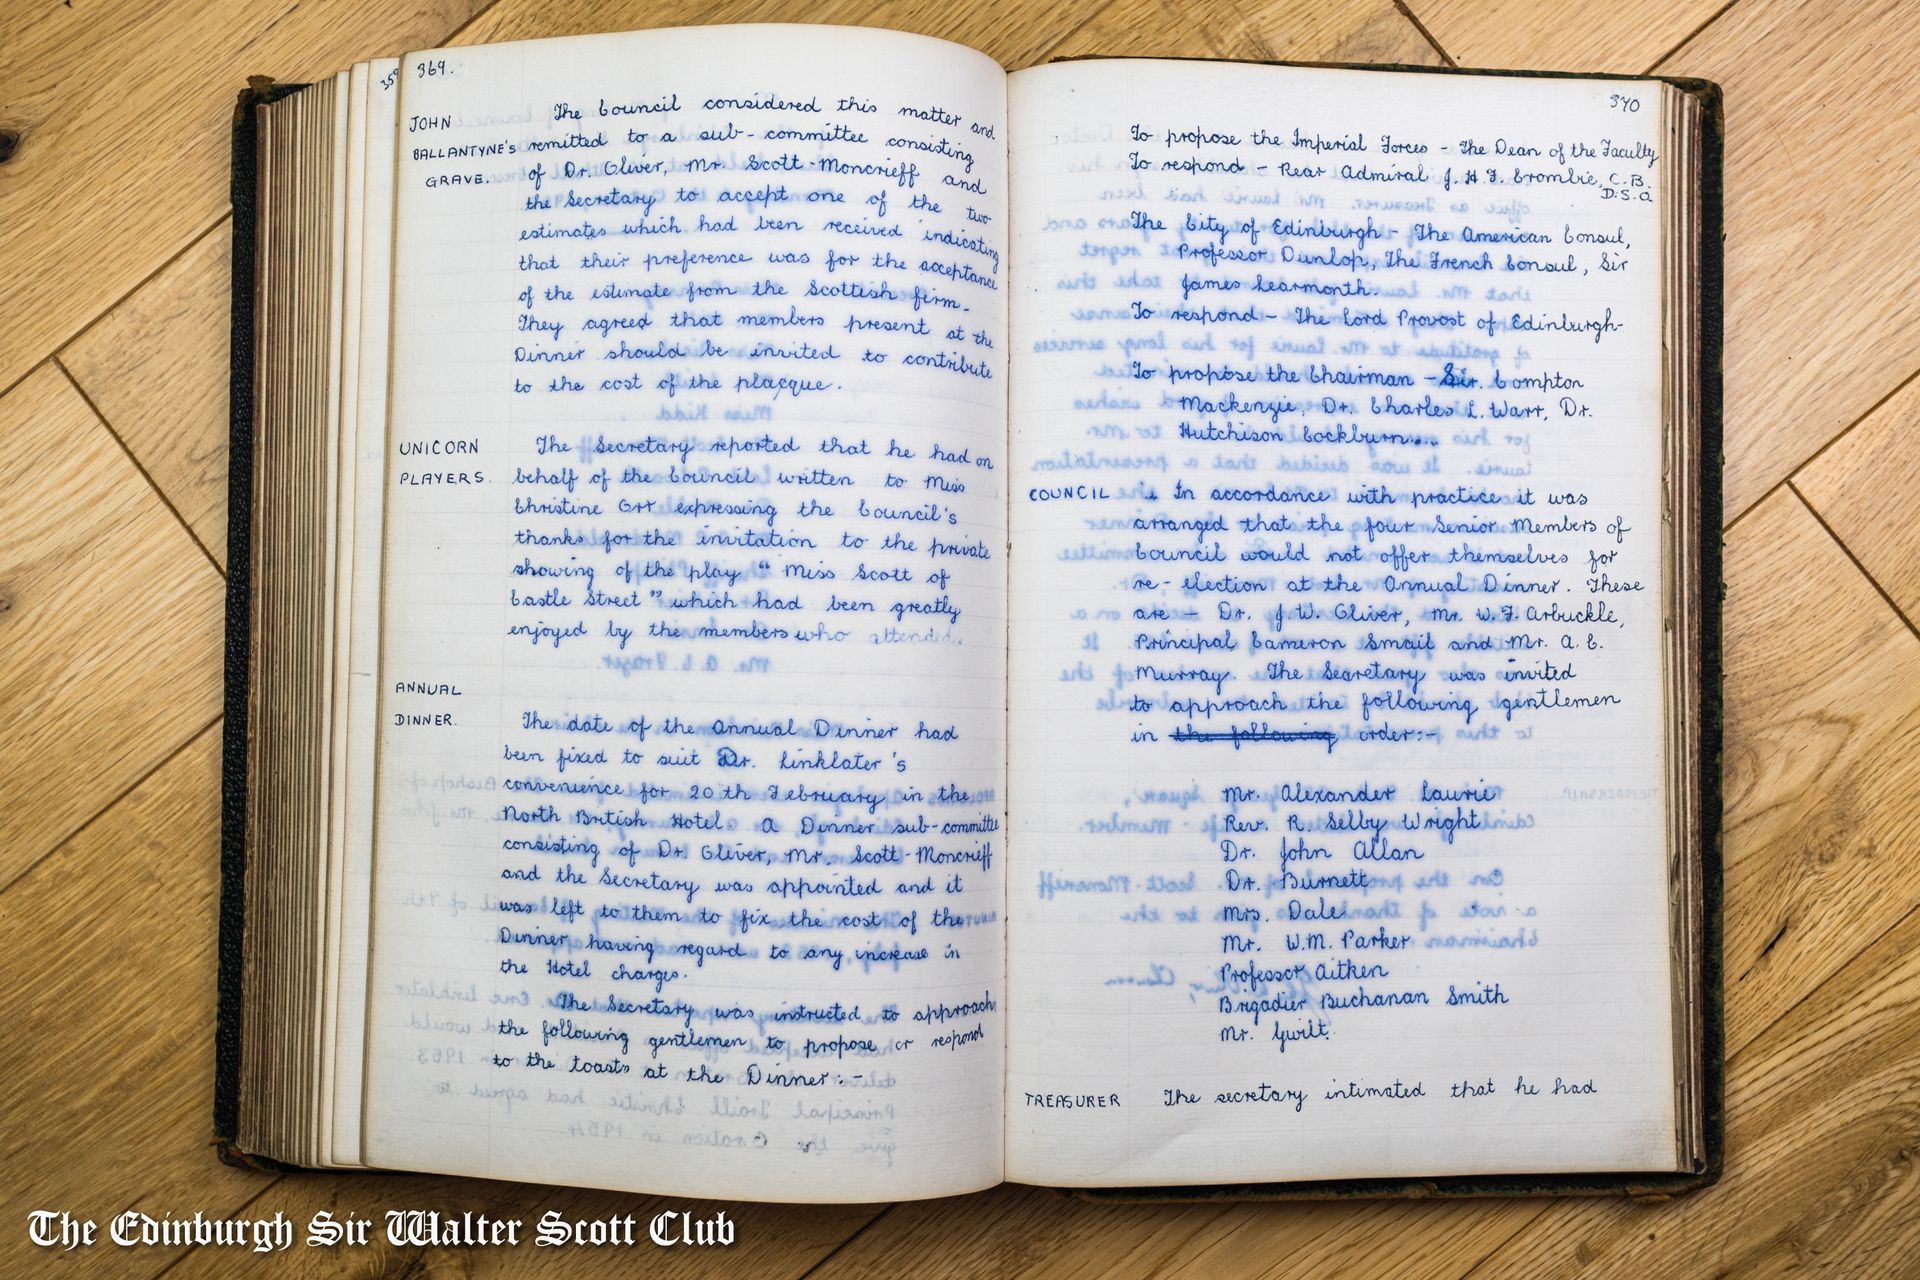 359
369.
JOHN
BALLANTYNE'S
GRAVE.
The Council considered this matter and
remitted to a sub-committee consisting
of Dr. Oliver, Mr. Scott-Moncrieff and
the Secretary to accept one of the two
estimates which had been received indicating
that their preference was for the acceptance
of the estimate from the Scottish firm.
They agreed that members present at the
Dinner should be invited to contribute
to the cost of the placque.
UNICORN
PLAYERS.
The Secretary reported that he had on
behalf of the Council written to Miss
Christine Orr expressing the Council's
thanks for the invitation to the private
showing of the play "Miss Scott of
Castle Street" which had been greatly
enjoyed by the members who attended.
ANNUAL
DINNER.
The date of the Annual Dinner had
been fixed to suit Dr. Linklater's
convenience for 20th February in the
North British Hotel. A Dinner sub-committee
consisting of Dr. Oliver, Mr. Scott-Moncrieff
and the Secretary was appointed and it
was left to them to fix the cost of the
Dinner having regard to any increase in
the Hotel charges.
The Secretary was instructed to approach
the following gentlemen to propose or respond
to the toasts at the Dinner:-
370
To propose the Imperial Forces - The Dean of the Faculty
To respond - Rear Admiral J.H.F. Crombie, C.B.
D.S.O.
The City of Edinburgh - The American Consul,
Professor Dunlop, The French Consul, Sir
James Learmonth.
To respond - The Lord Provost of Edinburgh-
To propose the Chairman - Sir. Compton
Mackenzie, Dr. Charles L. Warr, Dr.
Hutchison Cockburn....
COUNCIL
In accordance with practice it was
arranged that the four Senior Members of
Council would not offer themselves for
re-election at the Annual Dinner. These
are - Dr. J.W. Oliver, Mr. W.F. Arbuckle,
Principal Cameron Smail and Mr. A.C.
Murray. The Secretary was invited
to approach the following gentlemen
in the following order:-
Mr. Alexander Laurie
Rev. R. Selby Wright
Dr. John Allan
Dr. Burnett
Mrs. Dale
Mr. W.M. Parker
Professor Aitken
Brigadier Buchanan Smith
Mr. Gwilt.
TREASURER
The secretary intimated that he had
The Edinburgh Sir Walter Scott Club